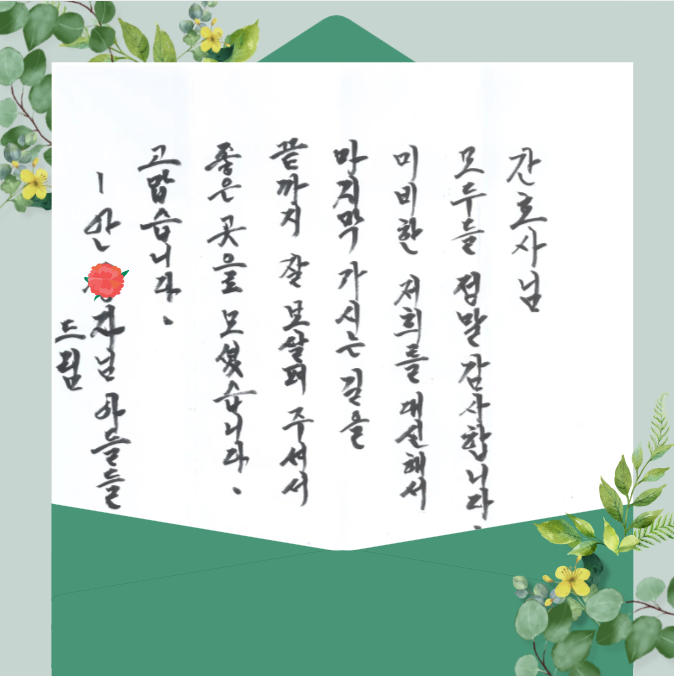 간호사님
모두들 정말 감사합니다.
미비한 저희를 대신해서
마지막 가시는 길을
끝까지 잘 보살펴 주셔서
좋은 곳으로 모셨습니다.
고맙습니다.
- 안 자님 아들들
드림